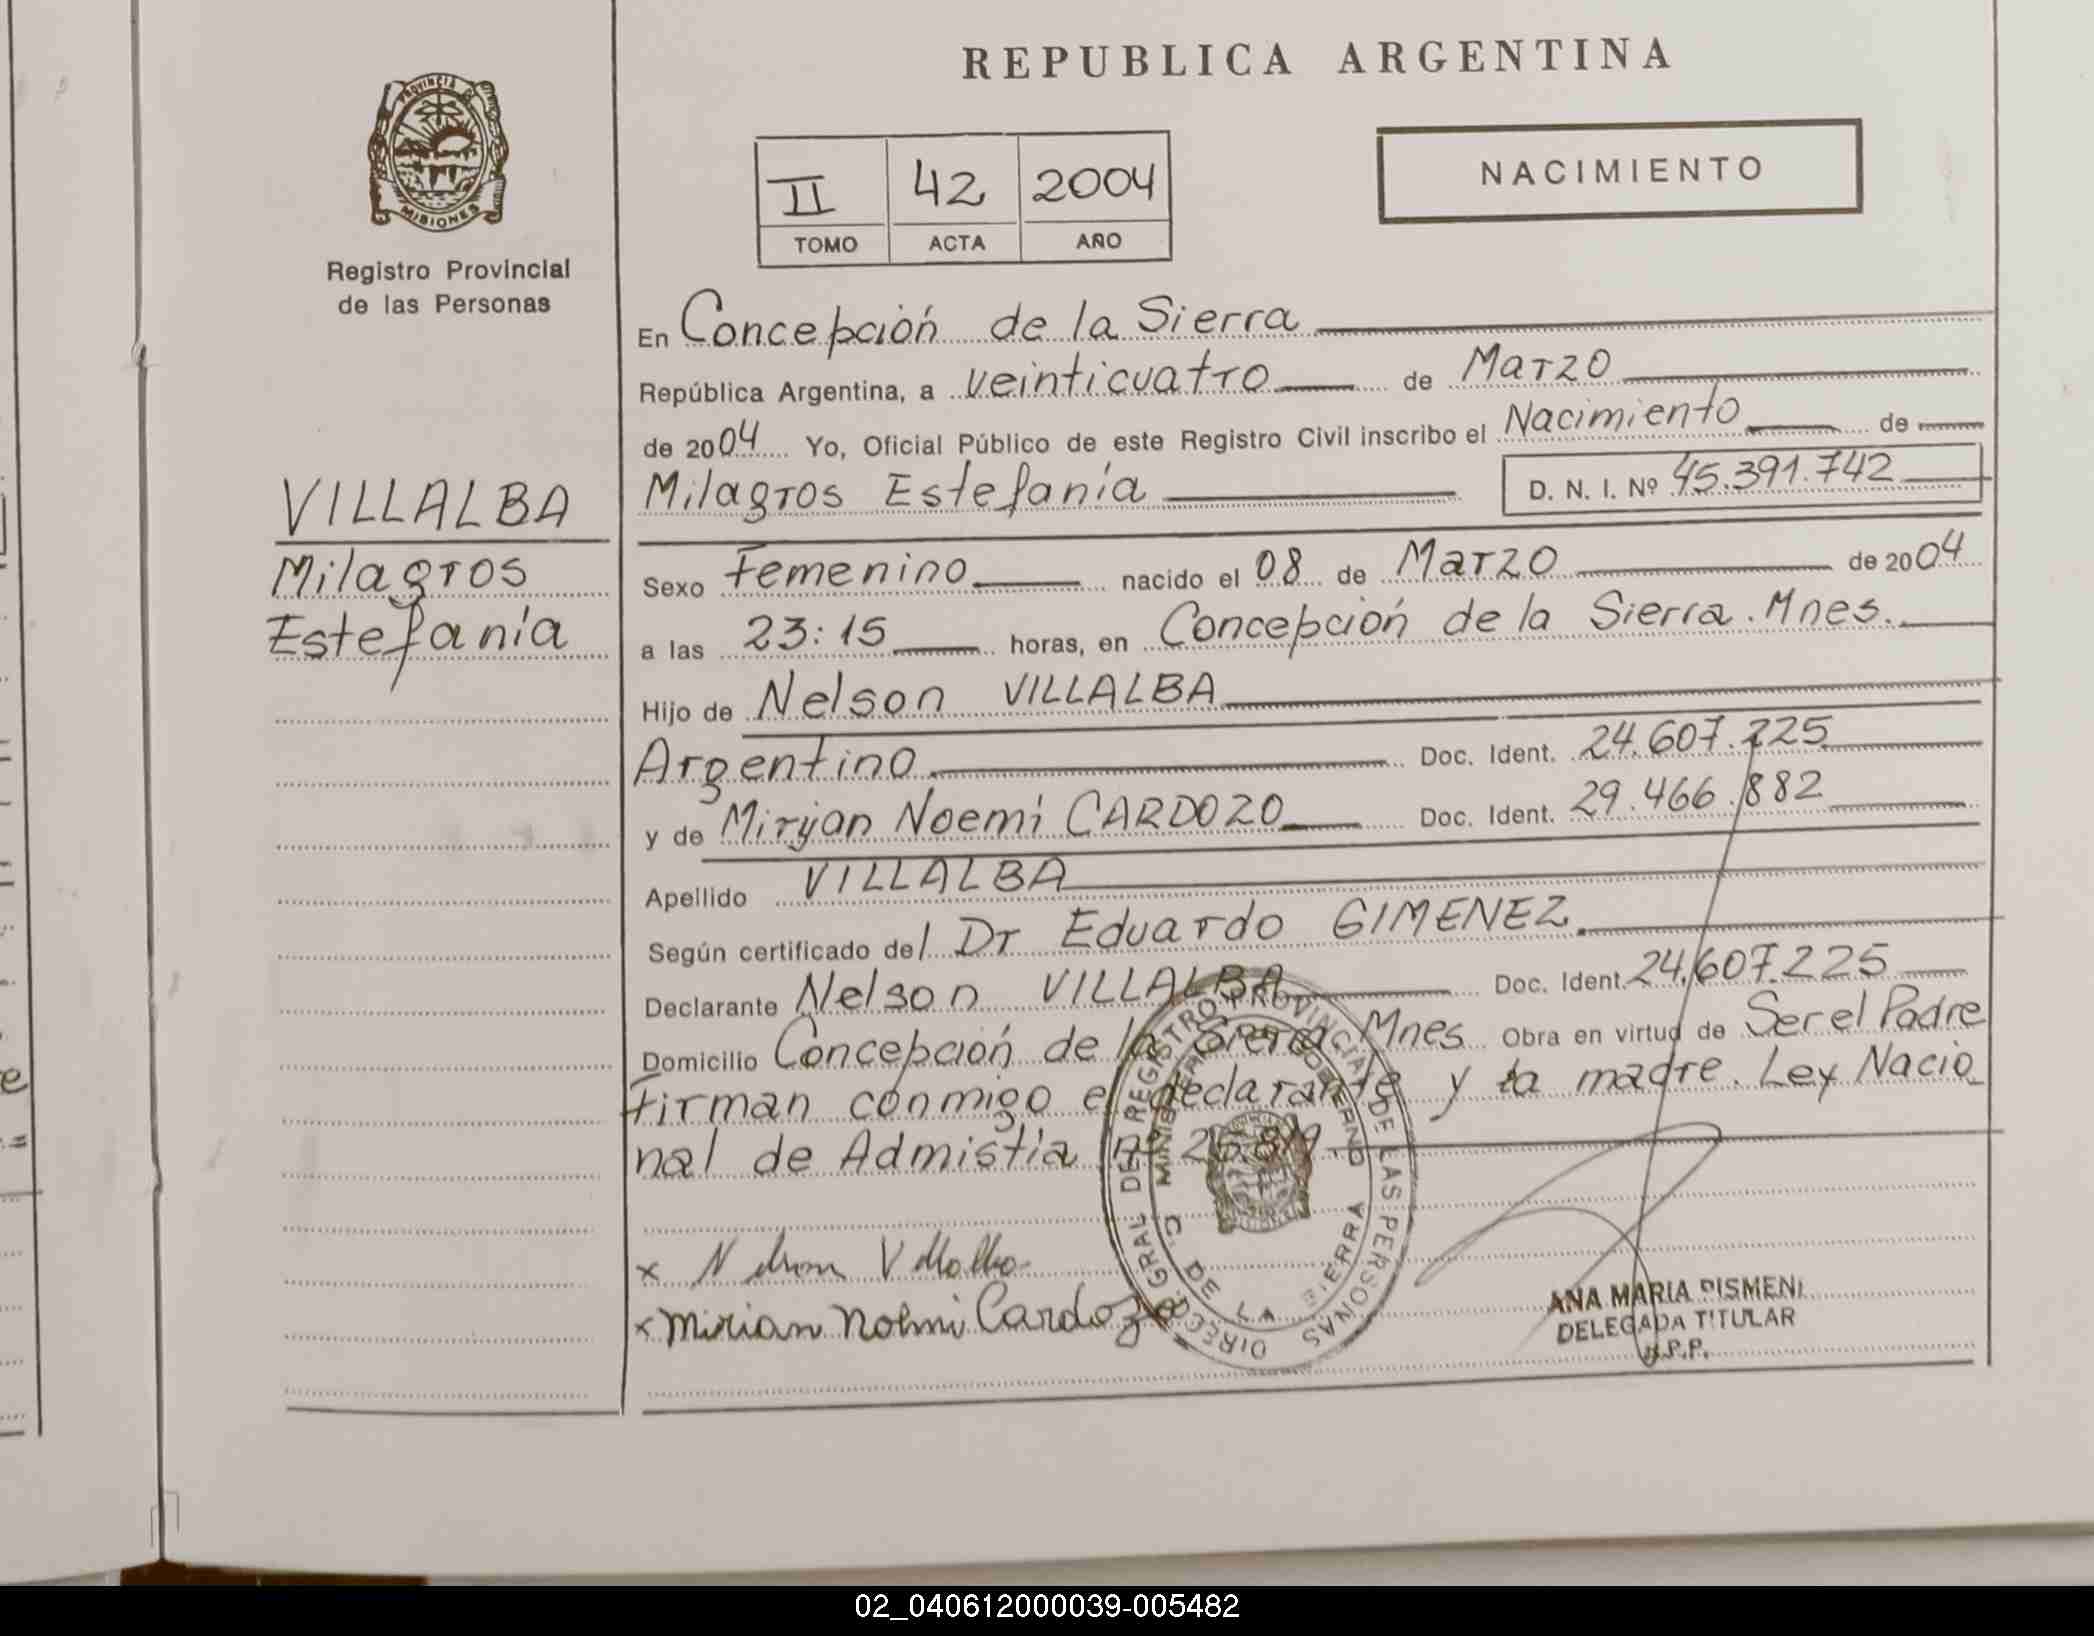 REPUBLICA ARGENTINA
PROVINCIA DE
MISIONES
Registro Provincial
de las Personas
II 42 2004
TOMO ACTA AÑO
NACIMIENTO
VILLALBA
Milagros
Estefanía
En Concepción de la Sierra
República Argentina, a veinticuatro de Marzo
de 2004 Yo, Oficial Público de este Registro Civil inscribo el Nacimiento de
Milagros Estefanía D. N. I. Nº 45.391.742
Sexo Femenino nacido el 08 de Marzo de 2004
a las 23:15 horas, en Concepción de la Sierra. Mnes.
Hijo de Nelson VILLALBA
Argentino Doc. Ident. 24.607.225
y de Miryan Noemi CARDOZO Doc. Ident. 29.466.882
Apellido VILLALBA
Según certificado del Dr Eduardo GIMENEZ.
Declarante Nelson VILLALBA Doc. Ident. 24.607.225
Domicilio Concepción de la Sierra Mnes Obra en virtud de Ser el Padre
Firman conmigo el declarante y la madre. Ley Nacio
nal de Admistia nº 25.819
x Nelson Villalba
x Mirian Noemi Cardozo
DIRECC. GRAL DE REGISTRO PROVINCIAL DE LAS PERSONAS
GOBIERNO
C. DE LA SIERRA
ANA MARIA PISMENI
DELEGADA TITULAR
R.P.P.
02_040612000039-005482